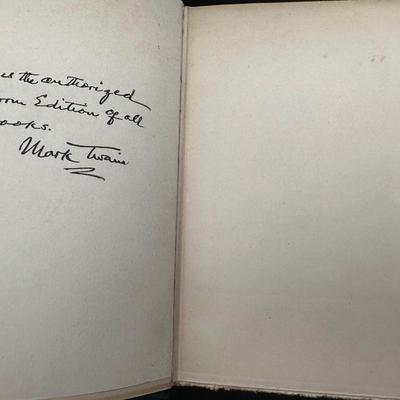 is the authorized
Edition of all
Mark Twain